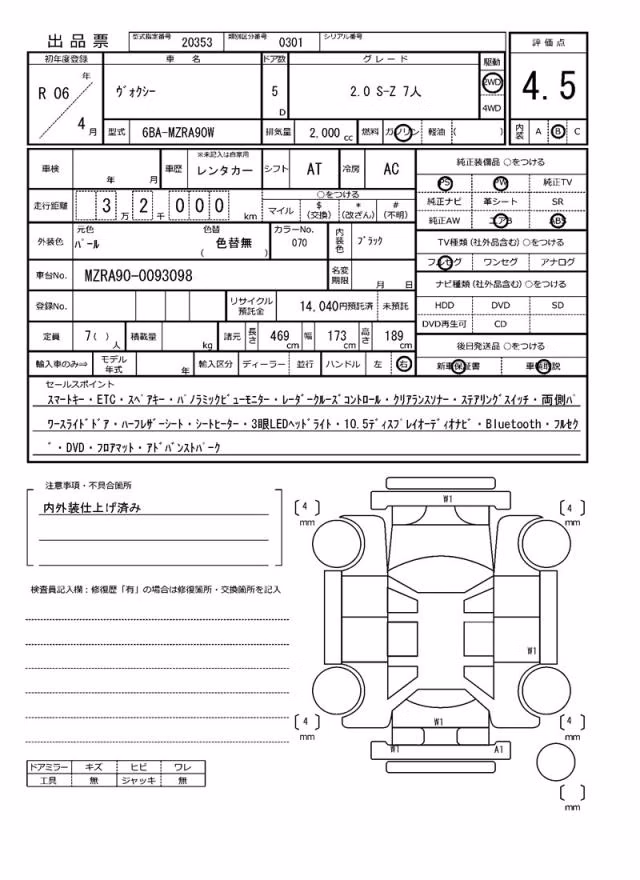 出品票 型式指定番号 20353 類別区分番号 0301 シリアル番号
初年度登録 車名 ドア数 グレード 駆動 評価点
R 06 年 4 月 ヴォクシー 5 D 2.0 S-Z 7人 2WD 4WD 4.5
型式 6BA-MZRA90W 排気量 2,000 cc 燃料 ガソリン 軽油 ( ) 内装 A B C
車検 年 月 車歴 ※未記入は自家用 レンタカー シフト AT 冷房 AC
走行距離 3 万 2 千 0 0 0 km ○をつける
マイル $(交換) *(改ざん) #(不明)
外装色 元色 パール 色替 ( 色替無 ) カラーNo. 070 内装色 ブラック
車台No. MZRA90-0093098 名変期限 月 日
登録No. リサイクル預託金 14,040円預託済 未預託
定員 7( ) 人 積載量 kg 諸元 長さ 469 cm 幅 173 cm 高さ 189 cm
輸入車のみ⇒ モデル年式 年 輸入区分 ディーラー ・ 並行 ハンドル 左 右
純正装備品 ○をつける
PS PW 純正TV
純正ナビ 革シート SR
純正AW エアB ABS
TV種類 (社外品含む) ○をつける
フルセグ ワンセグ アナログ
ナビ種類 (社外品含む) ○をつける
HDD DVD SD
DVD再生可 CD
後日発送品 ○をつける
新車保証書 車輌取説
セールスポイント
スマートキー・ETC・スペアキー・パノラミックビューモニター・レーダークルーズコントロール・クリアランスソナー・ステアリングスイッチ・両側パ
ワースライドドア・ハーフレザーシート・シートヒーター・3眼LEDヘッドライト・10.5ディスプレイオーディオナビ・Bluetooth・フルセグ
・DVD・フロアマット・アドバンストパーク
注意事項・不具合箇所
内外装仕上げ済み
検査員記入欄:修復歴「有」の場合は修復箇所・交換箇所を記入
ドアミラー キズ ヒビ ワレ
工具 無 ジャッキ 無
W1
4 mm
4 mm
W1
4 mm
W1
4 mm
W1
A1
mm